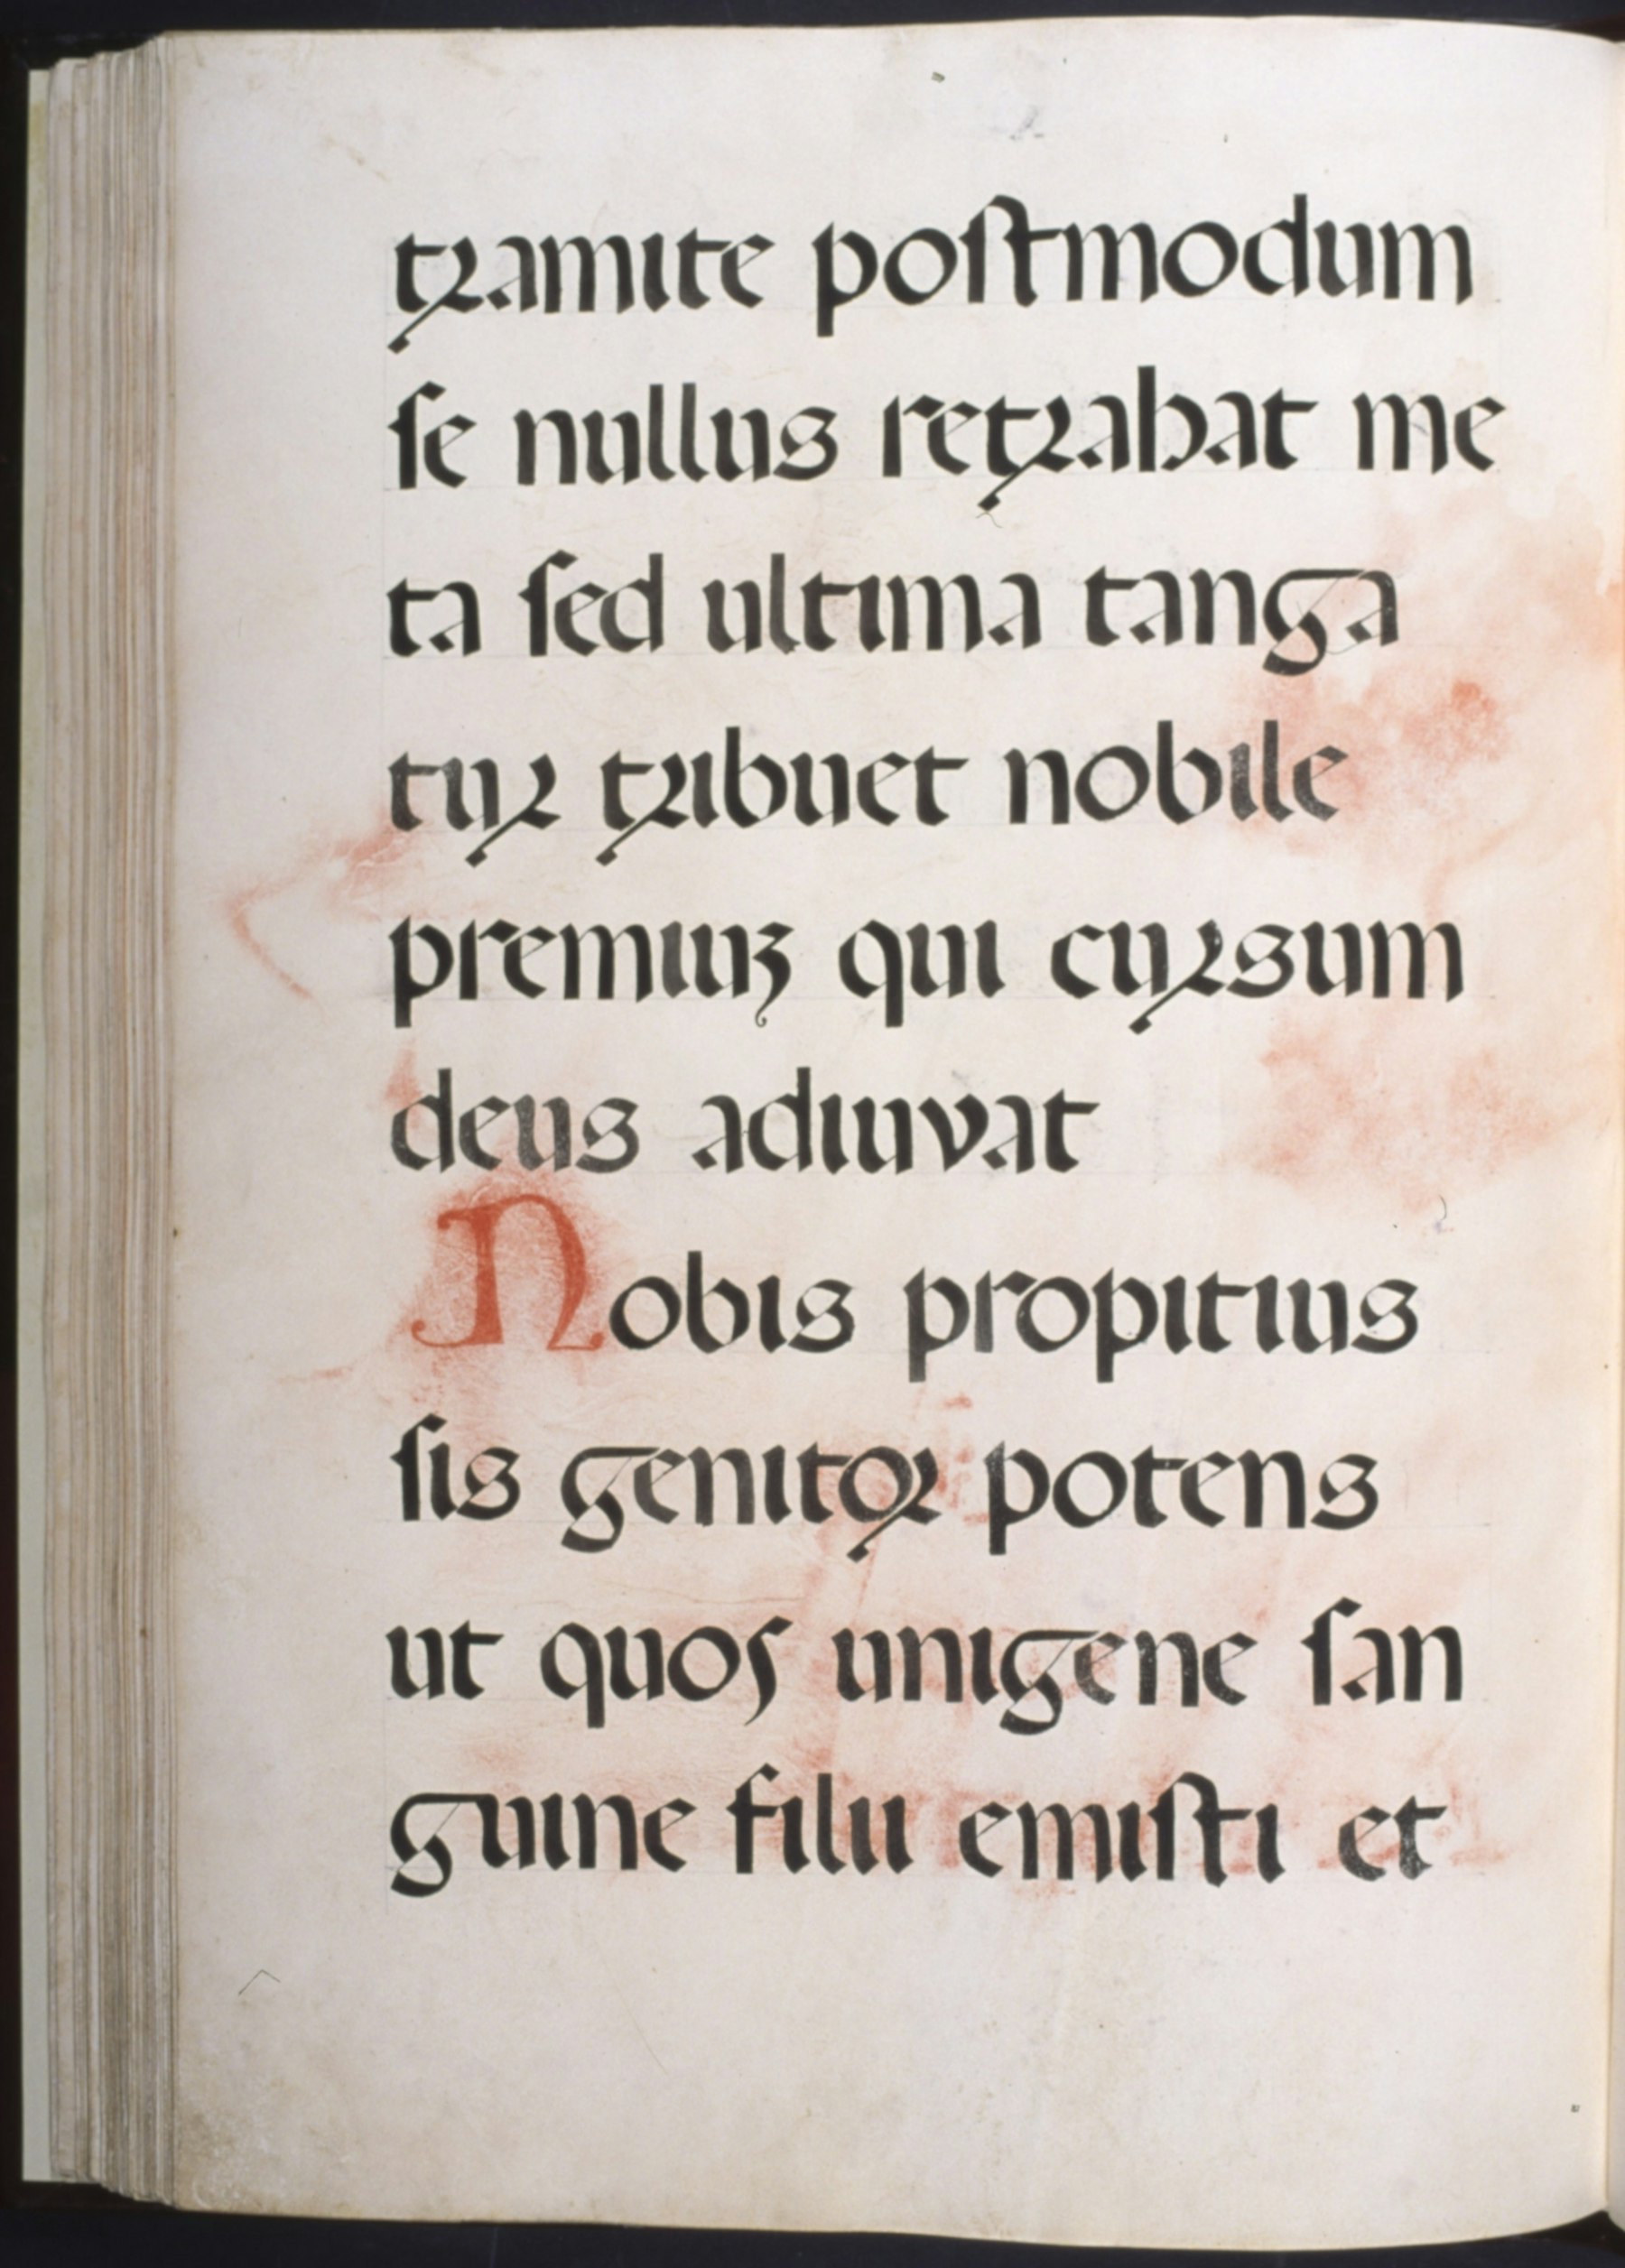 tꝛamite poſtmodum
ſe nullus retꝛahat me
ta ſed ultima tanga
tuꝛ tꝛibuet nobile
premiuȝ qui cuꝛsum
deus adiuvat
Nobis propitius
ſis genitoꝛ potens
ut quos unigene ſan
guine filii emiſti et